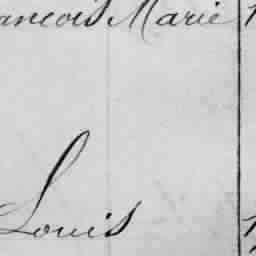 ancois Marie
Louis